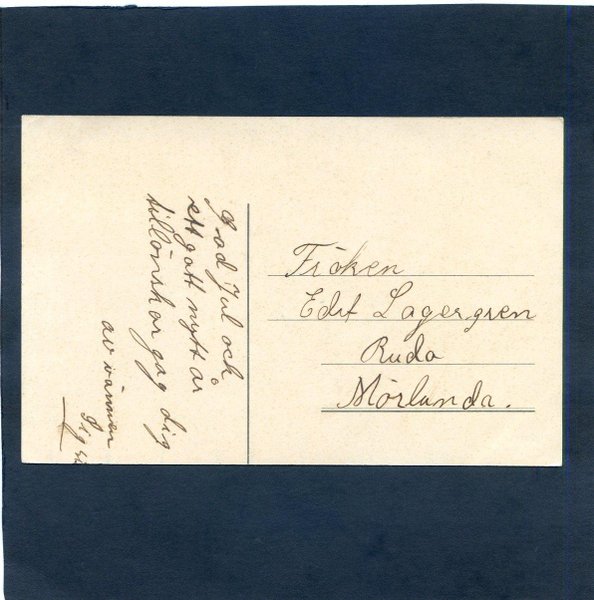 God Jul och
ett gott nytt år
tillönskar jag dig
av vännen
Fröken
Edit Lagergren
Ruda
Mörlunda.